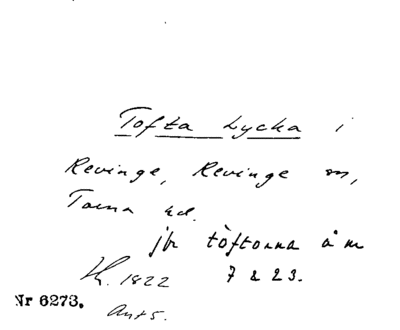 Tofta Lycka i
Revinge, Revinge sn,
Torna hd.
jfr töftorna å n
7 & 23.
1822
Nr 6273.